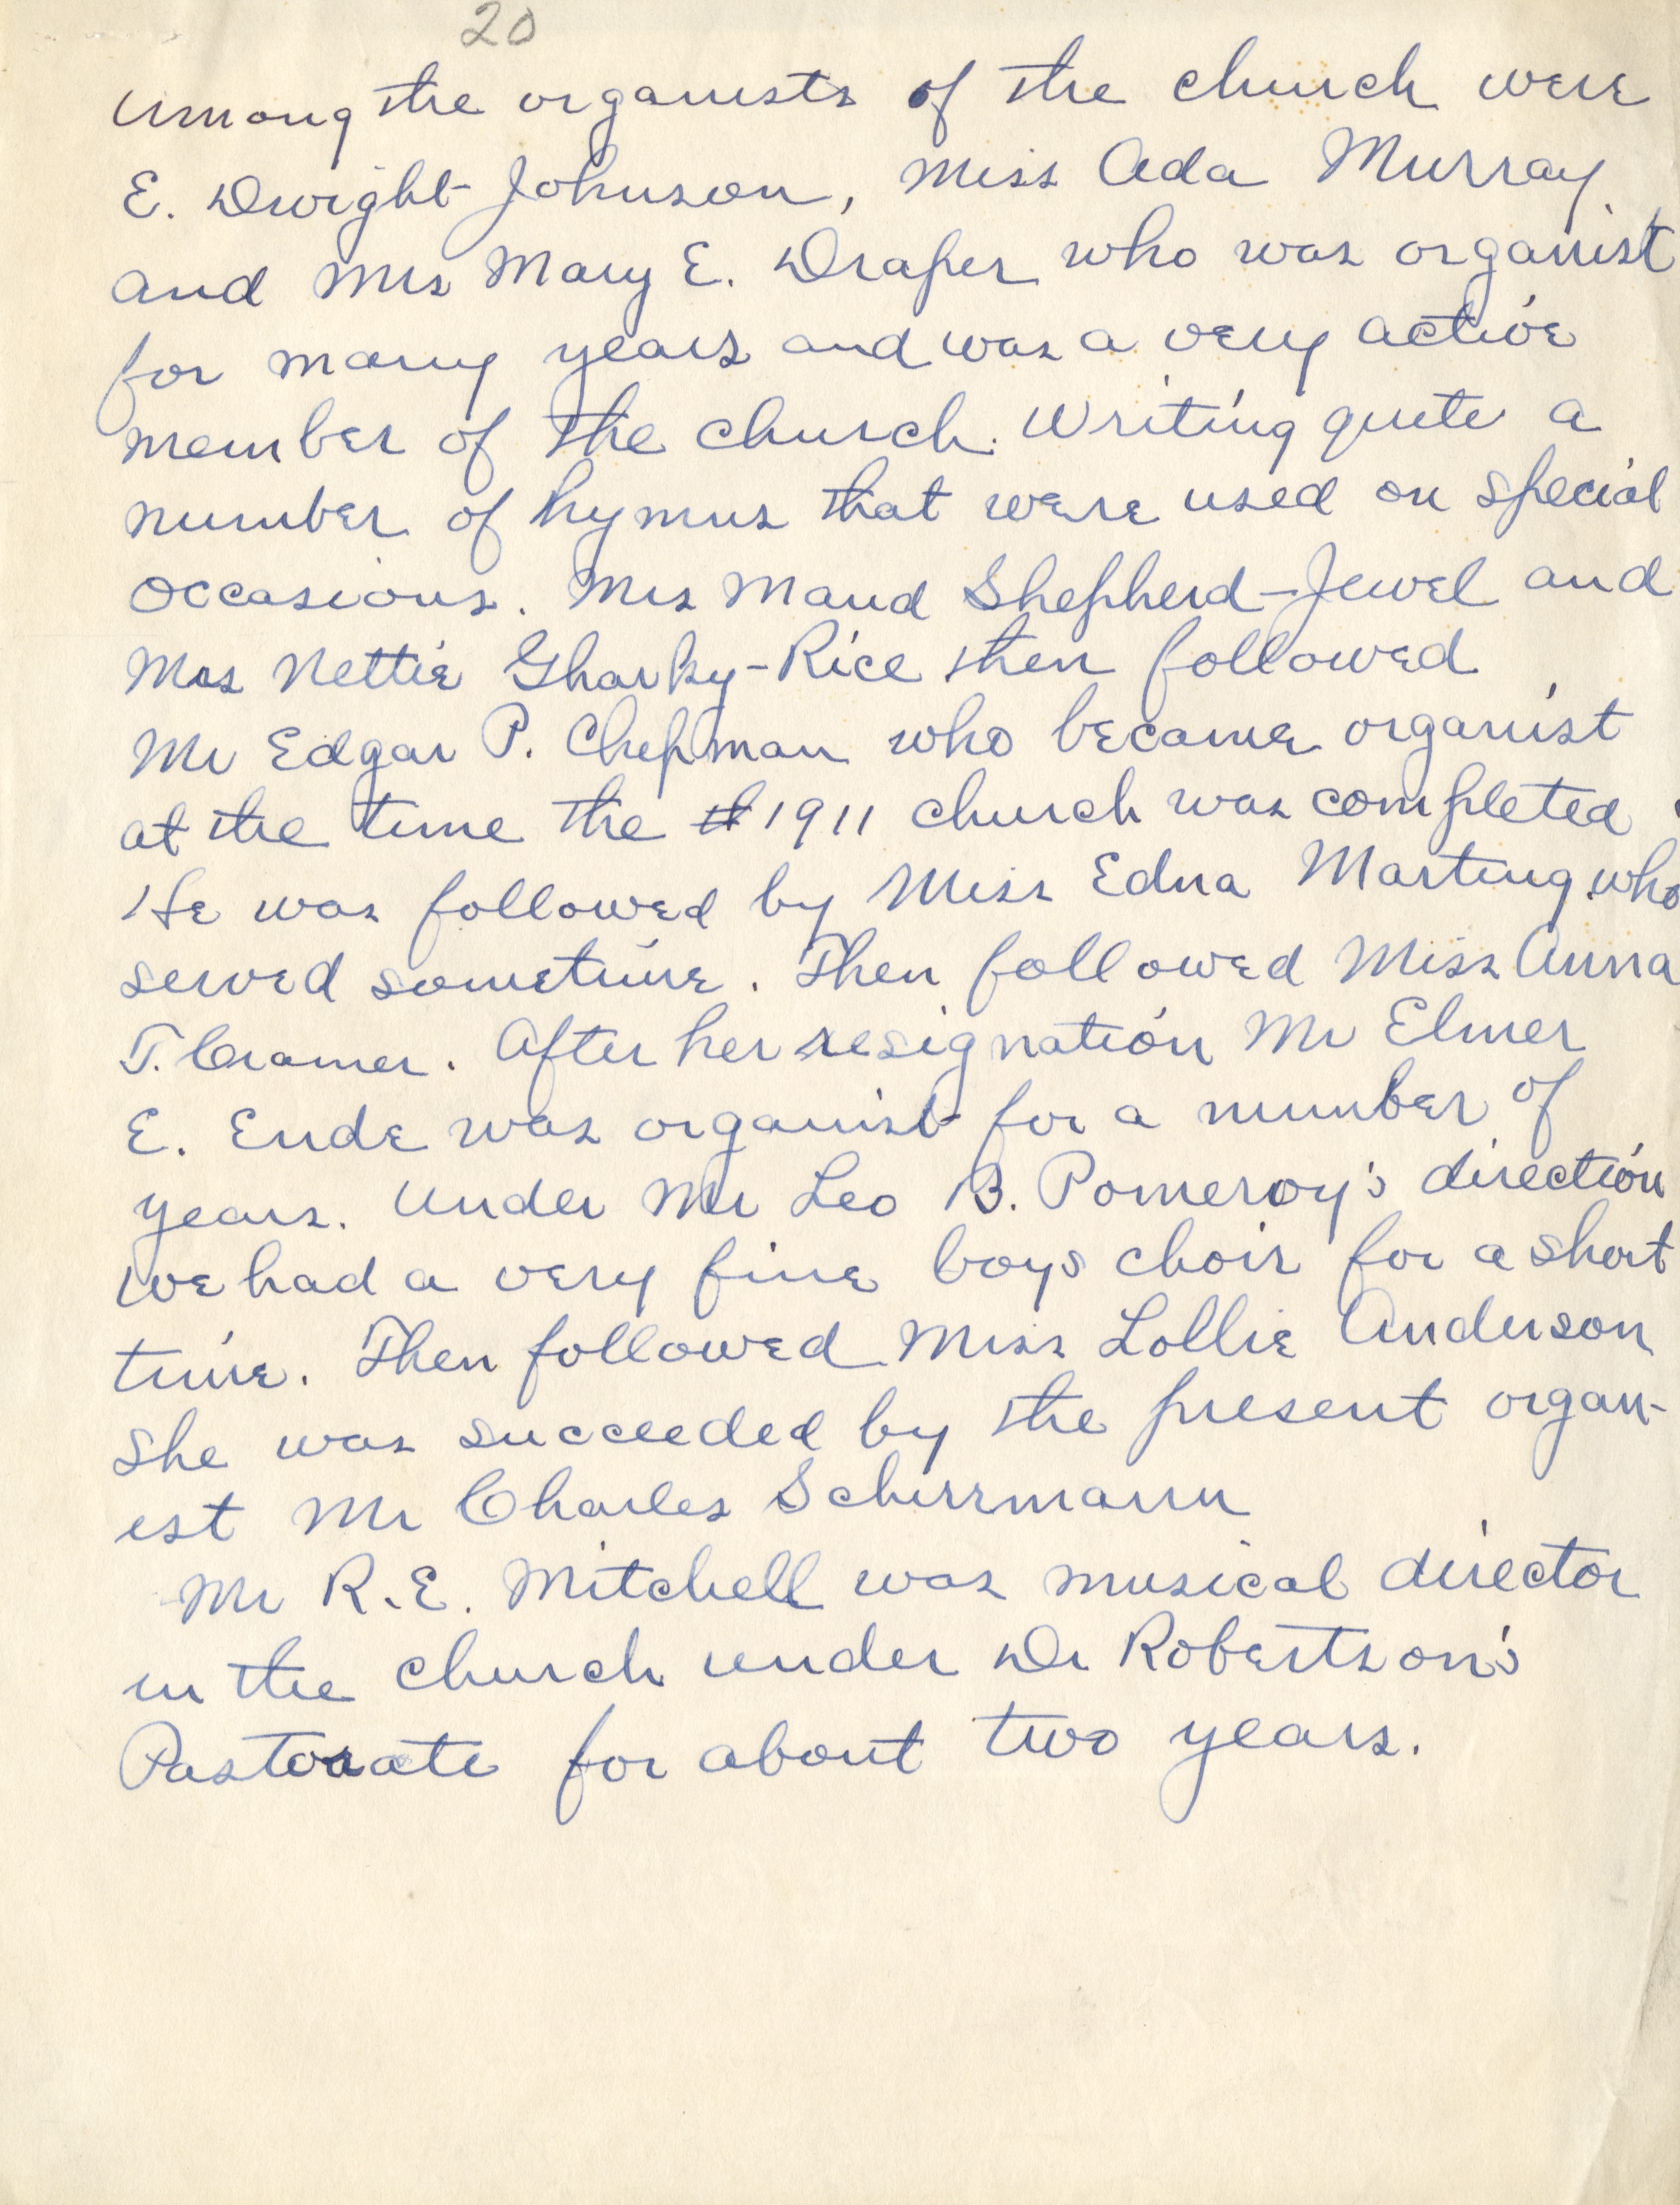 20
Among the organists of the church were
E. Dwight Johnson, Miss Ada Murray
and Mrs Mary E. Draper who was organist
for many years and was a very active
member of the church. Writing quite a
number of hymns that were used on special
occasions. Mrs Maud Shepherd-Jewel and
Mrs Nettie Gharky-Rice then followed
Mr Edgar P. Chepman who became organist
at the time the 1911 church was completed
He was followed by Miss Edna Marting who
served sometime. Then followed Miss Anna
T. Cramer. After her resignation Mr Elmer
E. Ende was organist for a number of
years. Under Mr Leo B. Pomeroy's direction
we had a very fine boys choir for a short
time. Then followed Miss Lollie Anderson
She was succeeded by the present organ-
ist Mr Charles Schirrmann
Mr R.E. Mitchell was musical director
in the church under Dr Robertson's
Pastorate for about two years.